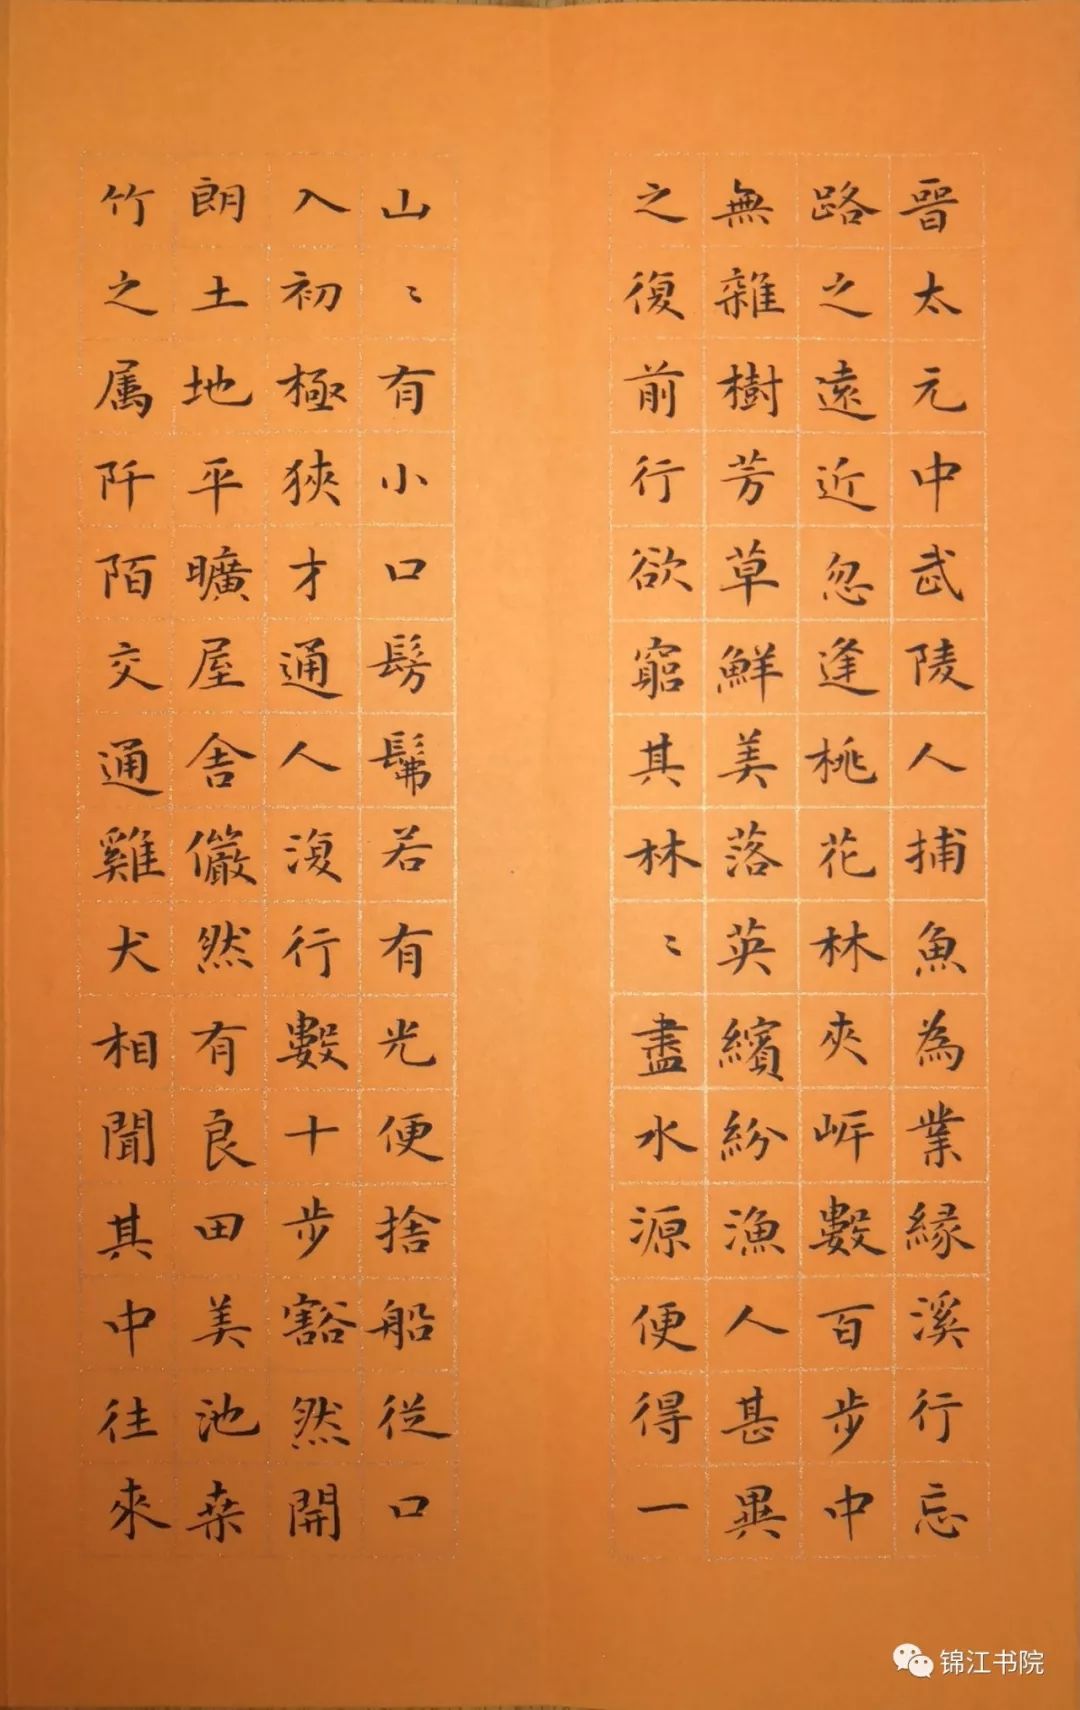 晉太元中武陵人捕魚為業緣溪行忘
路之遠近忽逢桃花林夾岸數百步中
無雜樹芳草鮮美落英繽紛漁人甚異
之復前行欲窮其林〻盡水源便得一
山〻有小口髣髴若有光便捨船從口
入初極狹才通人復行數十步豁然開
朗土地平曠屋舍儼然有良田美池桒
竹之属阡陌交通雞犬相聞其中往來
锦江书院